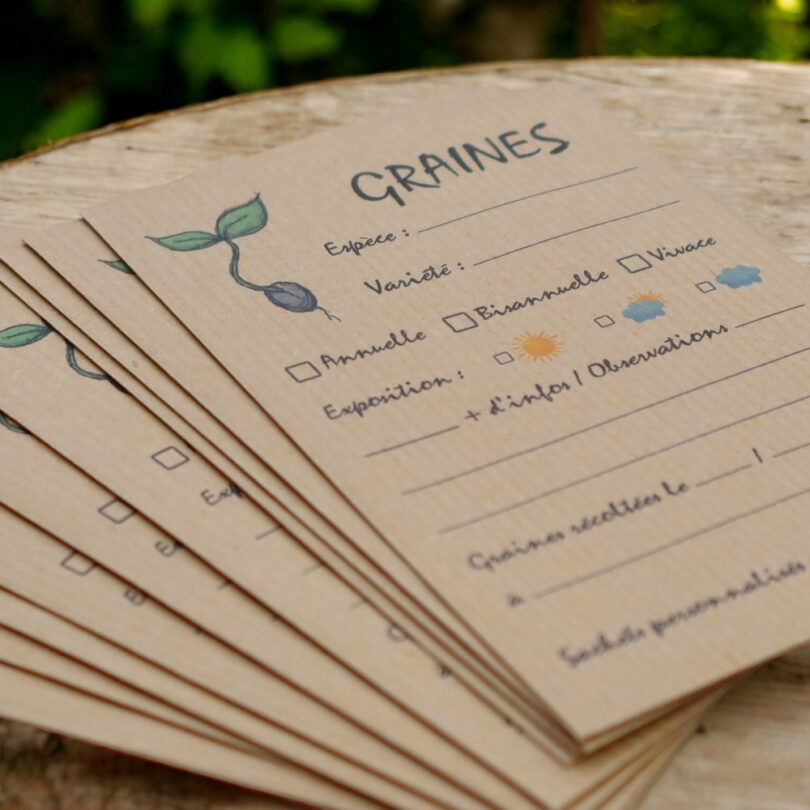 GRAINES
Espèce :
Variété :
Annuelle Bisannuelle Vivace
Exposition :
+ d'infos / Observations
Graines récoltées le / 
à
Sachets personnalisés